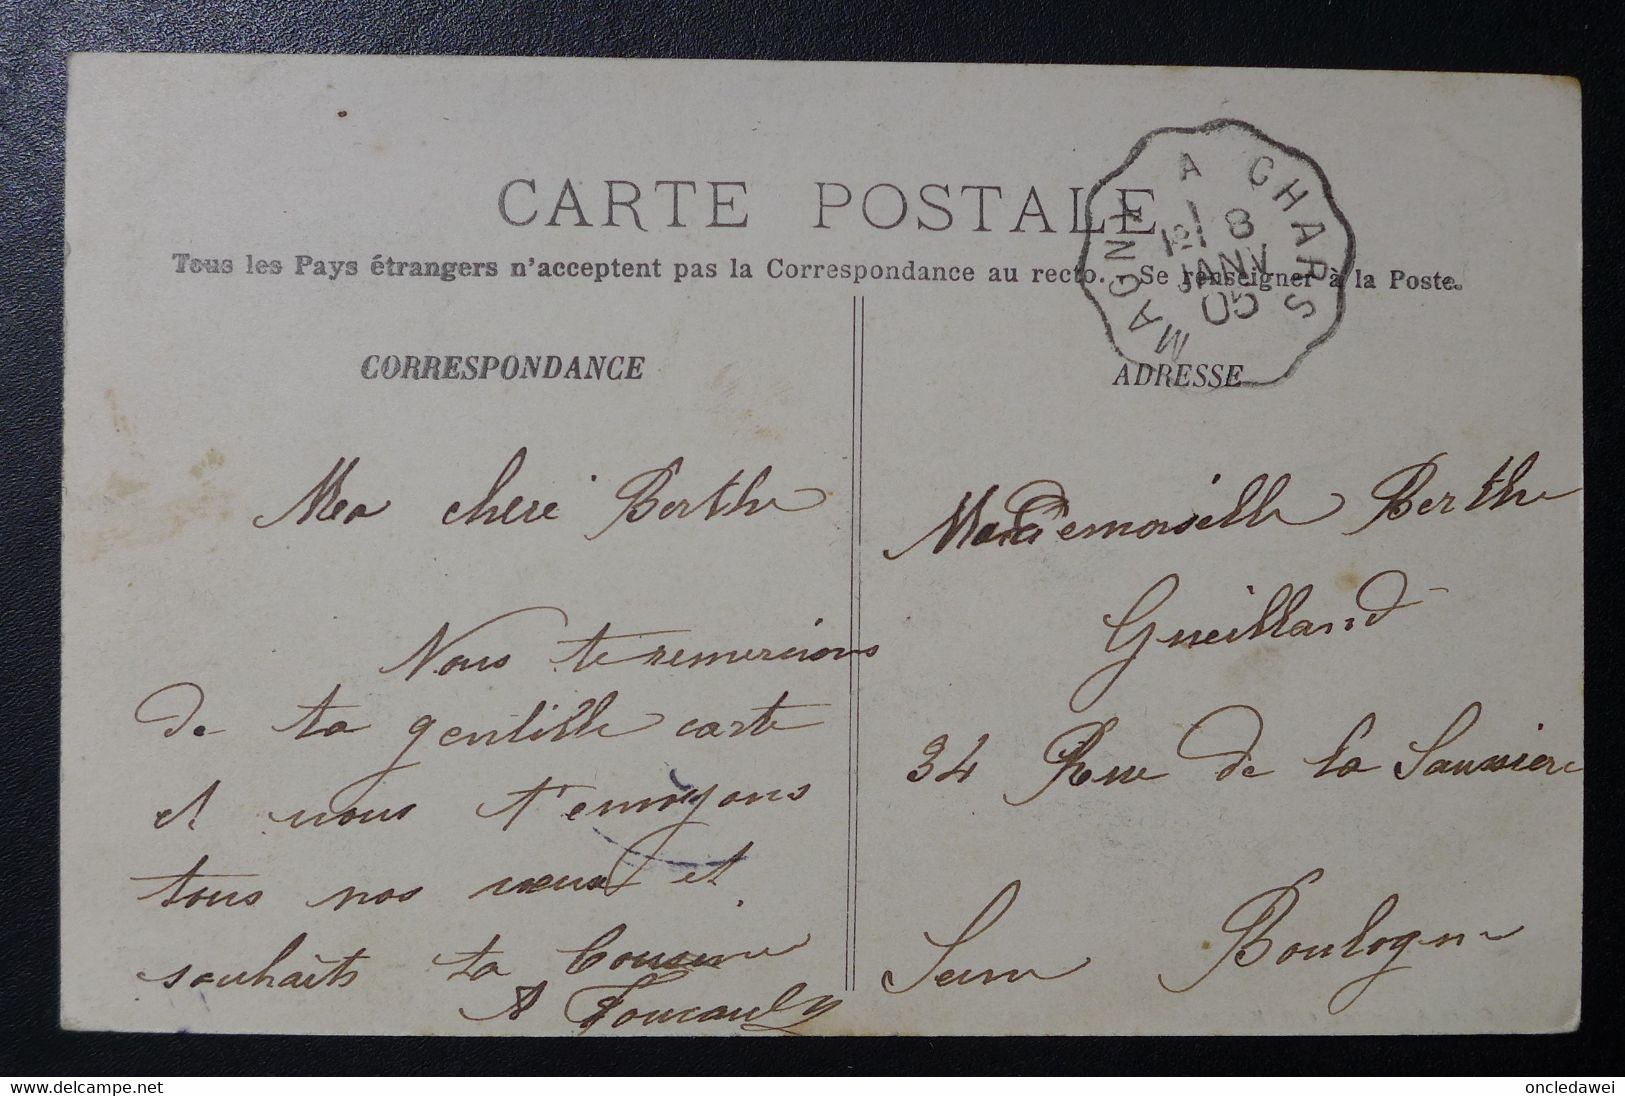 CARTE POSTALE
Tous les Pays étrangers n'acceptent pas la Correspondance au recto. - Se renseigner à la Poste.
MAGNY A CHARS
8
JANV
05
CORRESPONDANCE
Ma chère Berthe
Nous te remercions
de ta gentille carte
et nous t'envoyons
tous nos vœux et
souhaits ta Cousine
ADRESSE
Mademoiselle Berthe
Gueilland
34 Rue de la Saussière
Seine Boulogne
oncledawei